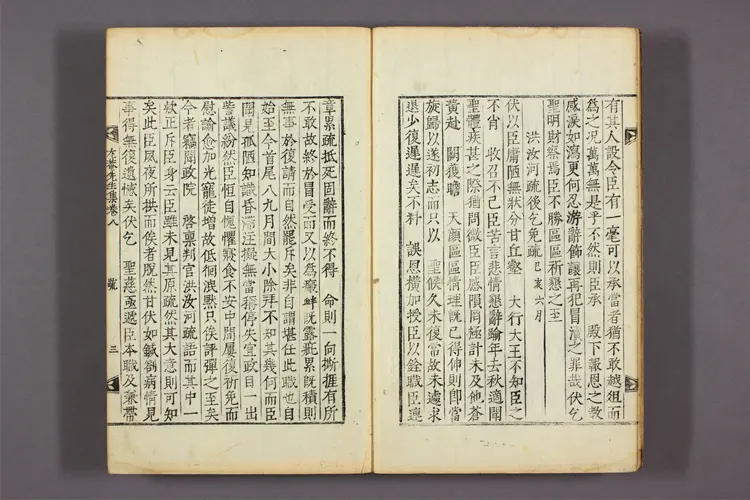 有其人設令臣有一毫可以承當者猶不敢越俎而
爲之况萬萬無是乎不然則臣承 殿下諏恩之敎
感淚如瀉更何忍游辭飾讓再犯冒瀆之罪哉伏乞
聖明財察焉臣不勝區區祈懇之至
洪汝河疏後乞免疏己亥六月
伏以臣庸陋無狀分甘丘壑 大行大王不知臣之
不肖 收召不已臣苦言悲情懇辭踰年去秋適聞
聖體疾甚之際猶問微臣臣感隕罔極計未及他蒼
黃赴 闕獲瞻 天顔區區情理旣已得伸則卽當
旋歸以遂初志而只以 聖候久未復常故未遽求
退少復遲遲矣不料 誤恩橫加授臣以銓職臣連
章累疏抵死固辭而終不得 命則一向撕捱有所
不敢故終於冒受而又以爲釁衅旣露疵累旣積則
無事於復請而自然罷斥矣非自謂堪任此職也自
始至今首尾八九月間大小除拜不知其幾何而臣
聞見孤陋知識昏滯注擬無當獨停失宜政目一出
訾議紛然臣恒自愧懼寢食不安中間屢復祈免而
慰諭愈加光寵徒增故低徊淟黙只俟評彈之至矣
今者竊聞政院 啓稟邦官洪汝河疏語而其中一
欵正斥臣身云臣雖未見其原疏然其大意則可知
矣此臣夙夜所拱而俟者旣然甘伏如鍼劄病情見
事得無復遺憾矣伏乞 聖慈亟遞臣本職及兼帶
左菴先生集卷八 疏 三